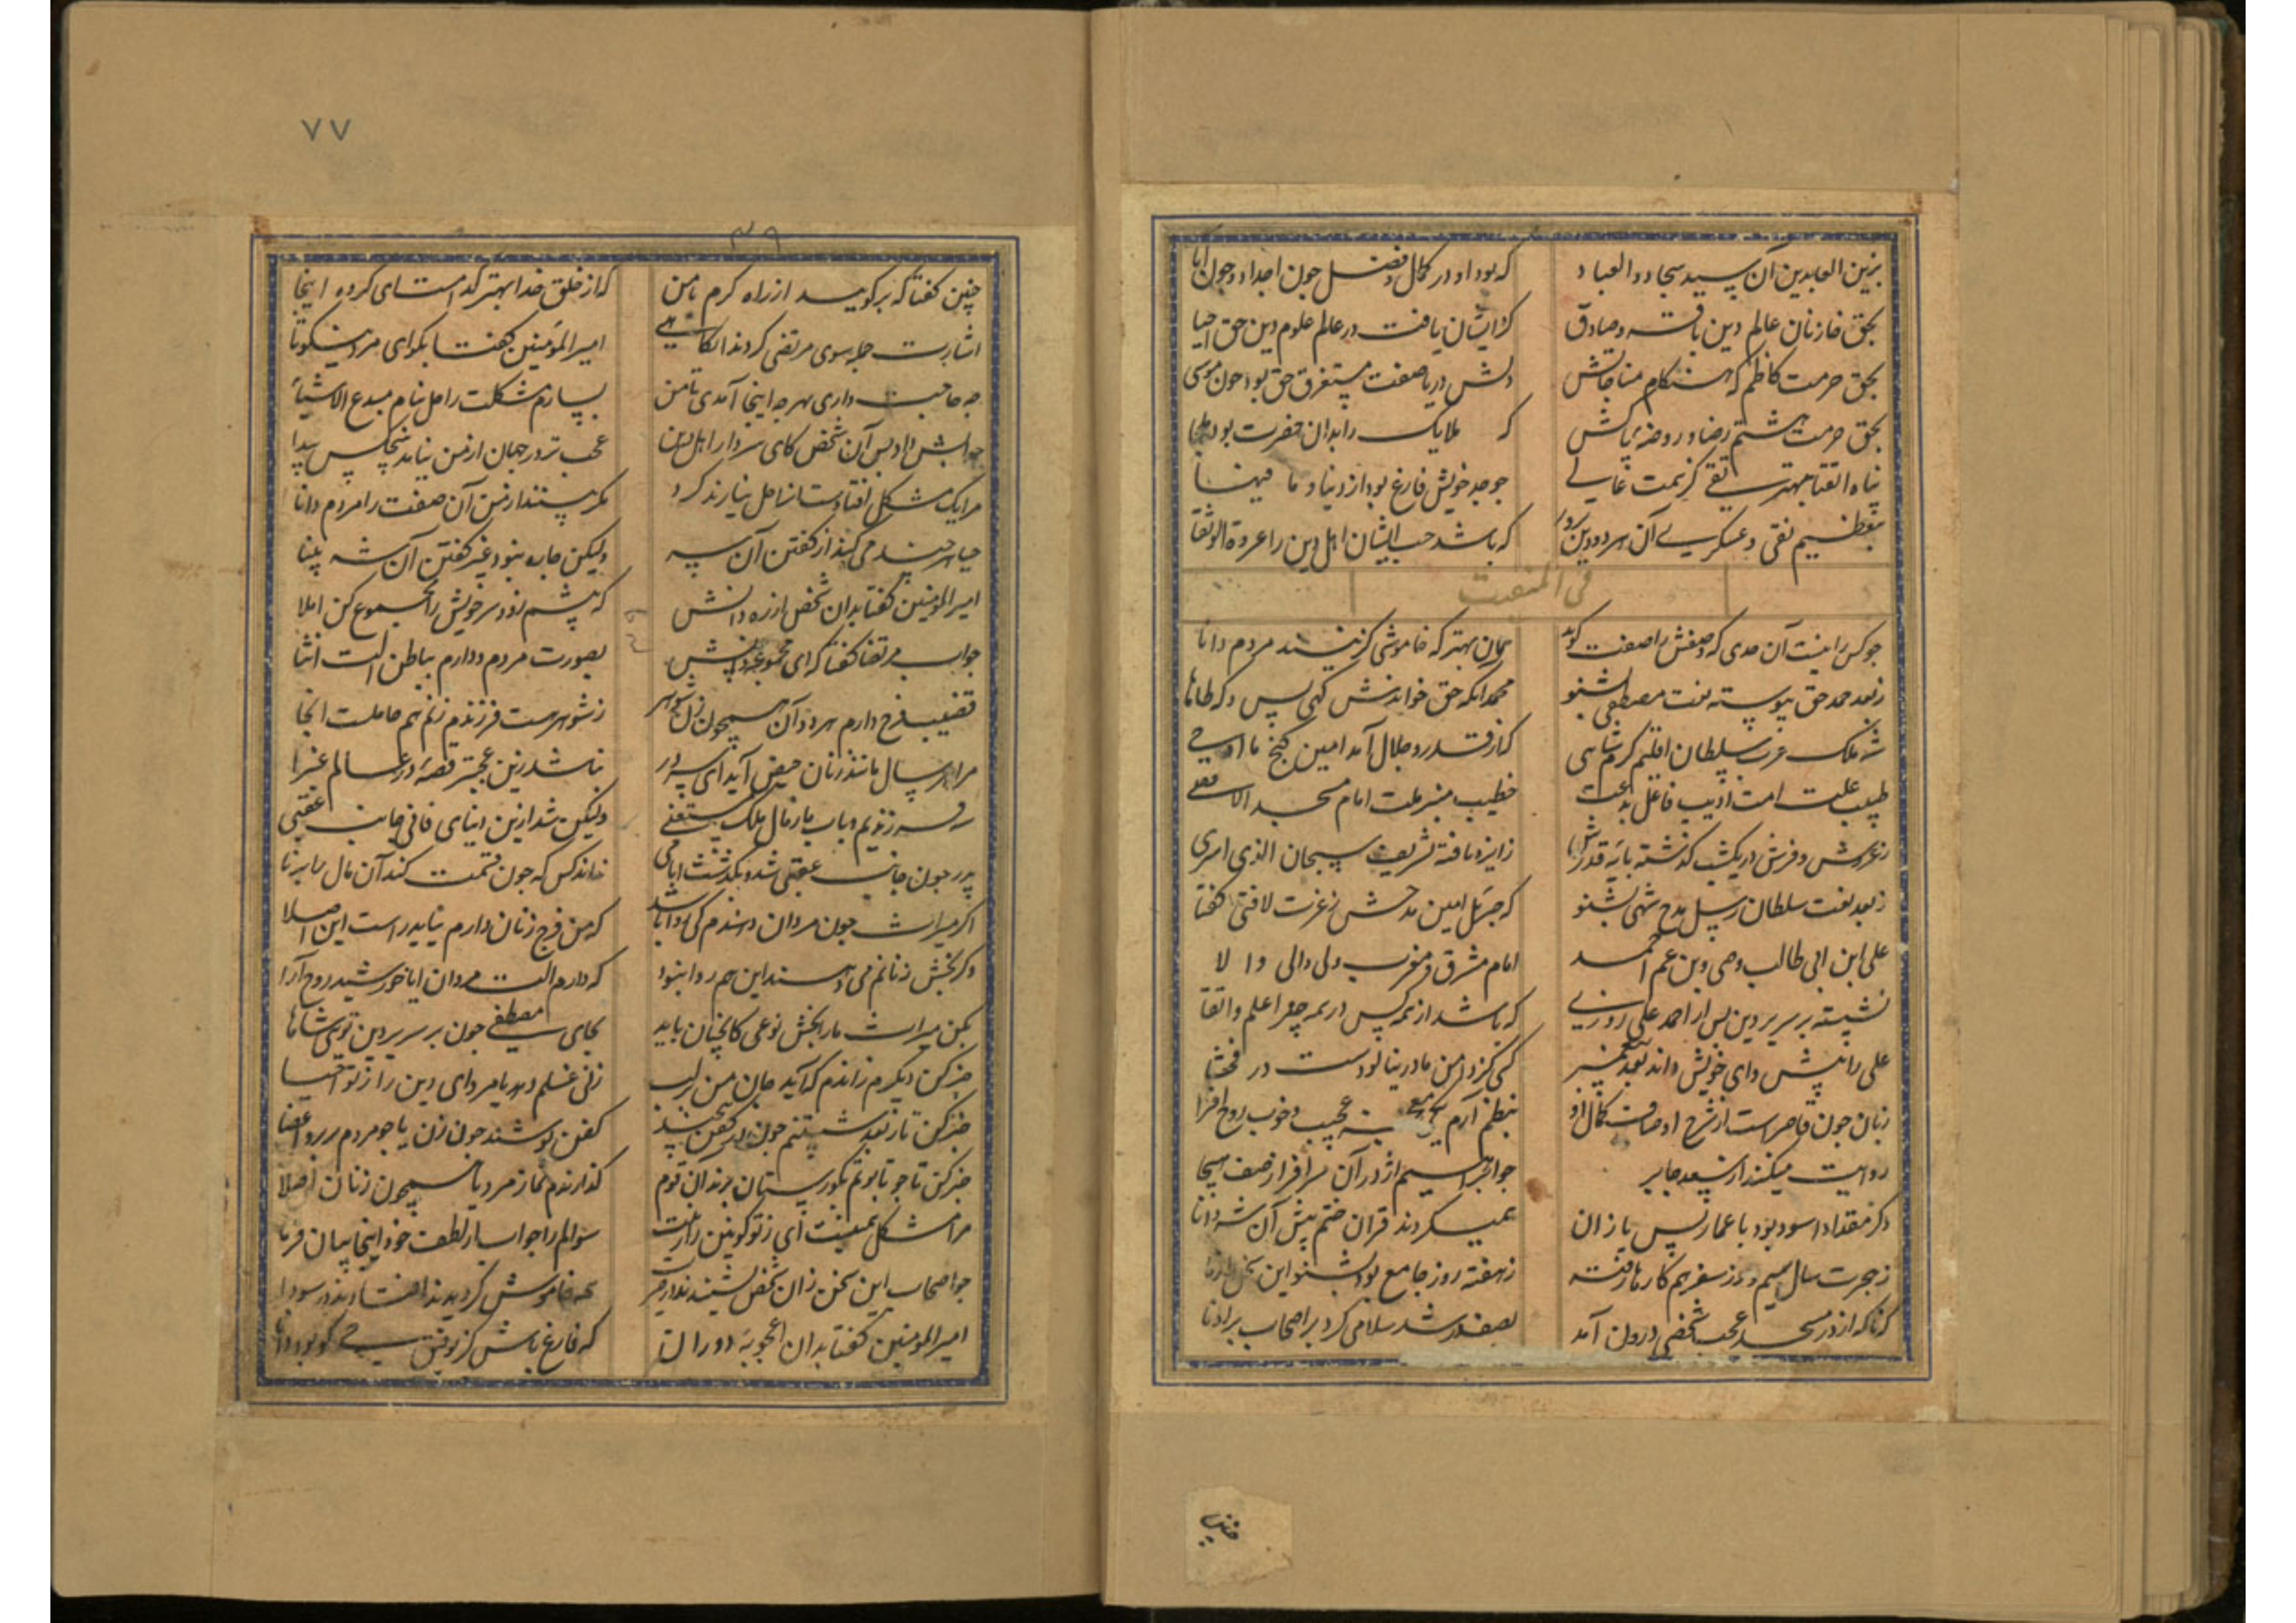 بزین العابدین آن سید سجاد و العباد که بود او در کمال و فضل چون اجداد و چون آبا
بحق خازنان عالم دین باقر و صادق کز ایشان یافت در عالم علوم دین حق احیا
بحق حرمت کاظم که هنکام مناجاتش دلش دریا صفت مستغرق حق بود چون موسی
بحق حرمت هشتم رضا و روضه پاکش که ملایک را بدان حضرت بود
پناه اتقیا مهتر تقی کز همت عالی وجود خویش فارغ بود از دنیا و ما فیها
بتعظیم نقی و عسکری آن هر دو دین پرور که باشد حب ایشان اهل دین را عروة الوثقا
فی المنقبت
چو کس را نیست آن حدی که وصفش را صفت کوید همان بهتر که خاموشی کزینند مردم دانا
ز بعد حمد حق پیوسته نعت مصطفی بشنو محمد انکه حق خواندش کهی یس و که طاها
شه ملک عرب سلطان اقلیم کرم شاهی کز قدر و جلال آمد امین کنج ما اوحی
طبیب علت امت ادیب فاعل بدعت خطیب منبر ملت امام مسجد الاقصی
ز عرش و فرش در یکشب کذشته پایه قدرش ز ایزد یافته تشریف سبحان الذی اسری
ز بعد نعت سلطان رسل مدح شهی بشنو که جبریل امین مدحش ز عزت لافتی کفتا
علی ابن ابی طالب وصی و بن عم احمد امام مشرق و مغرب ولی والی والا
نشسته بر سریر دین پس از احمد علی روزی که باشد از همه کس در همه چیز اعلم و اتقا
علی را پیشوای خویش داند بعد پیغمبر کسی کز دامن مادر نیالودست در فحشا
زبان چون قاصرست از شرح اوصاف کمال او بنظم آرم یکی عجیب و خوب روح افزا
روایت میکنند از سعد جابر چو ابراهیم اژدر آن سرافراز صف هیجا
دکر مقداد اسود بود با عمار پس یاران همیکردند قران ختم پیش آن شه دانا
ز هجرت سال سیم در ز سفر هم کارها رفته ز هفته روز جامع بود بشنو این سخن
که ناکه از در مسجد عجب شخصی درون آمد بصف در شد سلامی کرد بر اصحاب بر ادنا
چنین
۷۷
۳۹
چنین کفتا که برکویید از راه کرم با من که از خلق خدا بهتر کدامست ای کروه اینجا
اشارت جمله سوی مرتضی کردند انکاهی امیر المؤمنین کفتا بکو ای مرد نیکو تا
چه حاجت داری بهر چه اینجا آمدی تا من بسازم مشکلت را حل بنام مبدع الاشیا
جوابش داد پس آن شخص کای سردار اهل دین عجب تر در جهان از من نیاید هیچکس پیدا
مرا یک مشکل افتادست حل نیارند کرد مکر بینند از من آن صفت را مردم دانا
حیا هرچند می کند از کفتن آن سیه ولیکن چاره نبود غیر کفتن آن شه بینا
امیر المؤمنین کفتا بدان شخص از ره دانش که پیشم زود سر خویش را مجموع کن املا
جواب مرتضا کفتا که ای مجموعه دانش بصورت مردم و دارم بباطن آلت انثا
قضیب و فرج دارم هر دو آن همچون زن و شوهر ز شوهر هست فرزندم زنم هم حاملست انجا
مرا هر سال مانند زنان حیض آید ای سرور نباشد زین عجبتر قصه در عالم غبرا
فرزندیم و باب ما ز مال ملک مستغنی ولیکن شد ازین دنیای فانی جانب عقبی
پدر چون جانب عقبی شد و بکذشت نداند کس که چون قسمت کند آن مال را برنا
اکر میراث چون مردان دهندم کی روا باشد که من فرج زنان دارم نیاید راست این اصلا
وکر بخش زنانم می دهند این هم روا نبود که دارم آلت مردان ایا خورشید روح آرا
بکن میراث ما را بخش نوعی کانچنان باید بجای مصطفی چون بر سریر دین توی شاها
خبر کن دیکرم زاندم که آید جان من بر لب زنی غسلم دهد یا مرد ای دین را ز تو احیا
خبر کن تا ز بعد شستنم چون در کفن پیچند کفن پوشند چون زن یا چو مردم بر بر و اعضا
خبر کن تا چو تابوتم بکورستان برند آن قوم کذارندم نماز مرد یا همچون زنان اصلا
مرا مشکل همینست ای ز تو کونین را زینت سؤالم را جواب از لطف خود اینجا بیان فرما
چو اصحاب این سخن زان شخص بشنیدند همه خاموش کردیدند افتادند در سودا
امیر المؤمنین کفتا بدان اعجوبه دوران که فارغ باش